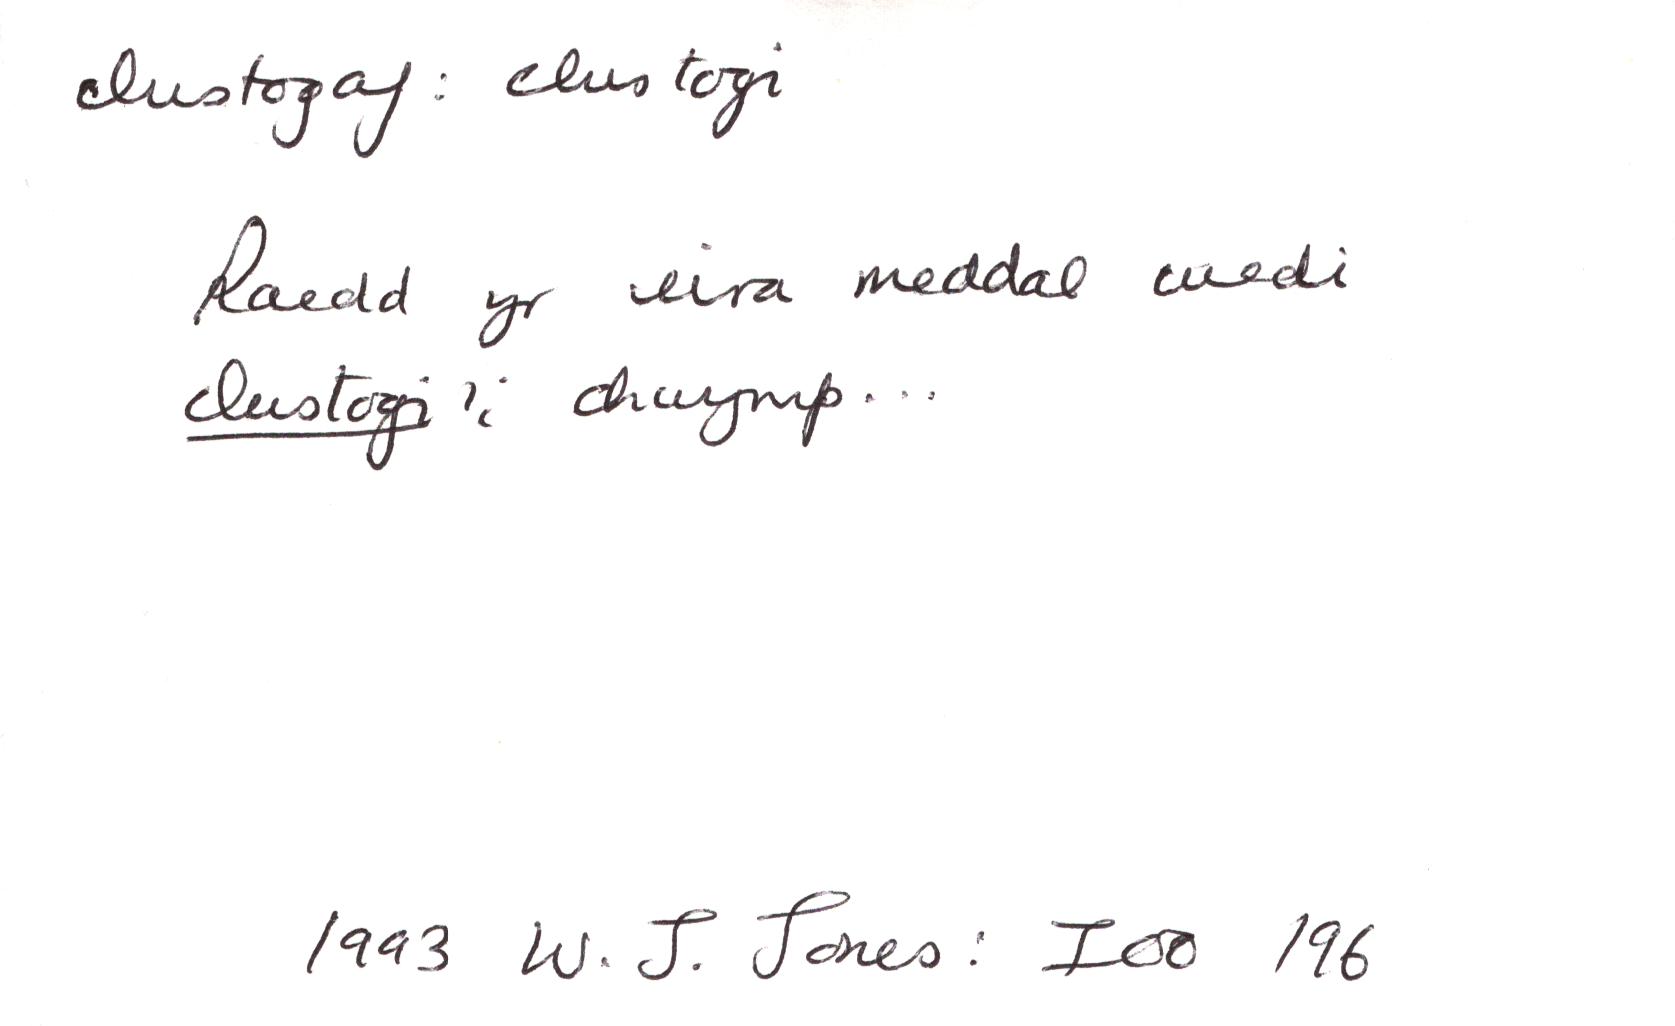 clustogaf: clustogi
Raedd yr eira meddal wedi
clustogi'i chwymp...
1993 W. J. Jones: IOO 196